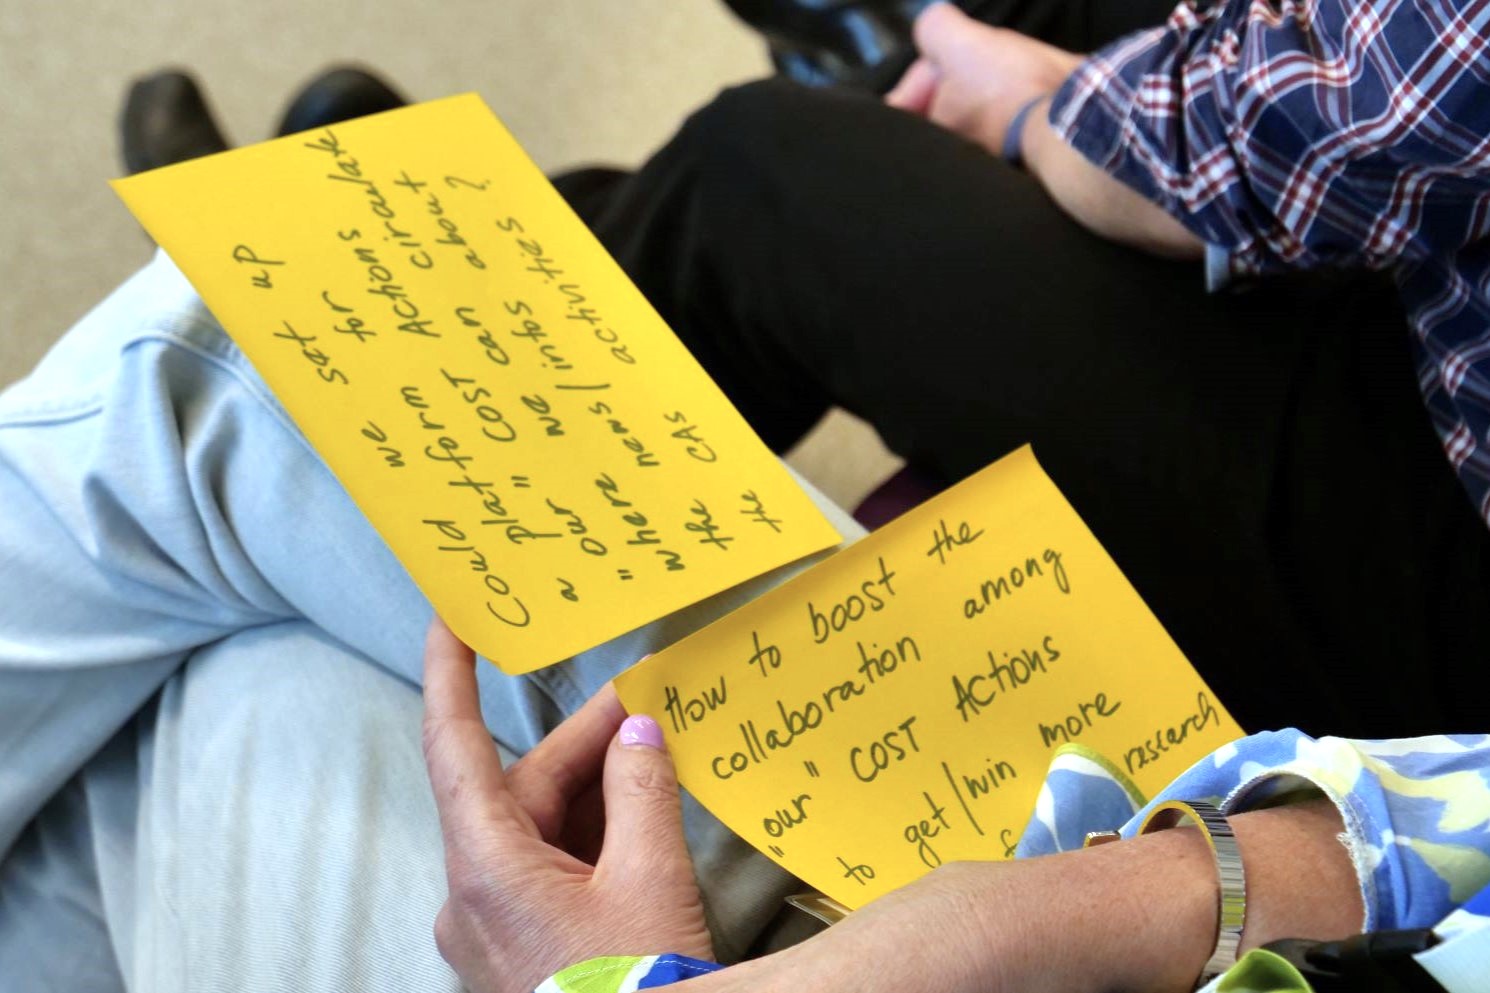 Could we set up
a platform for
"our" COST Actions
where we can circulate
the news/infos about
the CAs activities ?
How to boost the
collaboration among
"our" COST Actions
to get/win more
research